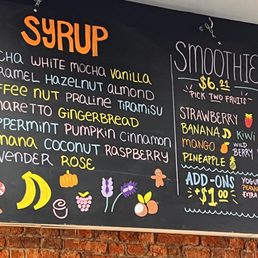 SYRUP
CHA WHITE MOCHA VANILLA
RAMEL HAZELNUT ALMOND
FFEE NUT PRALINE TIRAMISU
ARETTO GINGERBREAD
PPERMINT PUMPKIN CINNAMON
NANA COCONUT RASPBERRY
VENDER ROSE
SMOOTHIE
$6.
PICK TWO FRUITS
STRAWBERRY
BANANA KIWI
MANGO WILD BERRY
PINEAPPLE
ADD-ONS
+$1.00
YOGU
PEANU
EXTRA